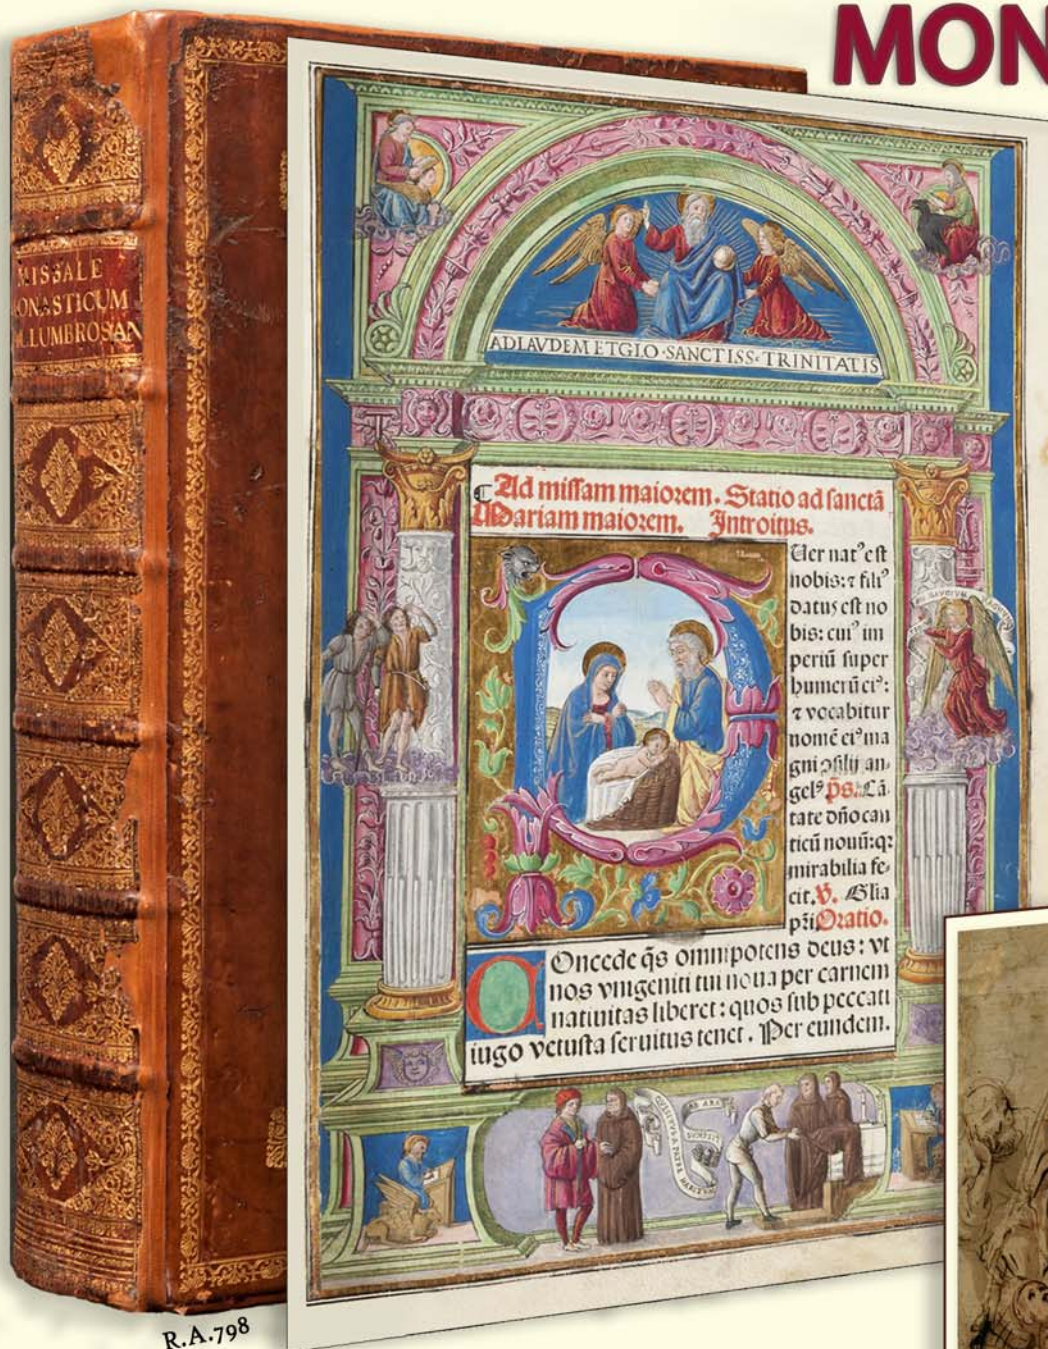 MON
MISSALE
ONASTICUM
LLUMBROSAN
ADLAVDEM ETGLO·SANCTISS·TRINITATIS
Ad missam maiorem. Statio ad sanctā
Mariam maiorem. Introitus.
Uer nat⁹ est
nobis: ⁊ fili⁹
datus est no
bis: cui⁹ im
periū super
humerū ei⁹:
⁊ vocabitur
nomē ei⁹ ma
gni ꝯsilij an-
gel⁹ p̄s. Cā
tate dn̄o can
ticū nouū: qꝛ
mirabilia fe-
cit. V. Glia
pr̄i Oratio.
Oncede q̄s omnipotens deus: vt
nos vnigeniti tui noua per carnem
natiuitas liberet: quos sub peccati
iugo vetusta seruitus tenet. Per eundem.
R.A.798